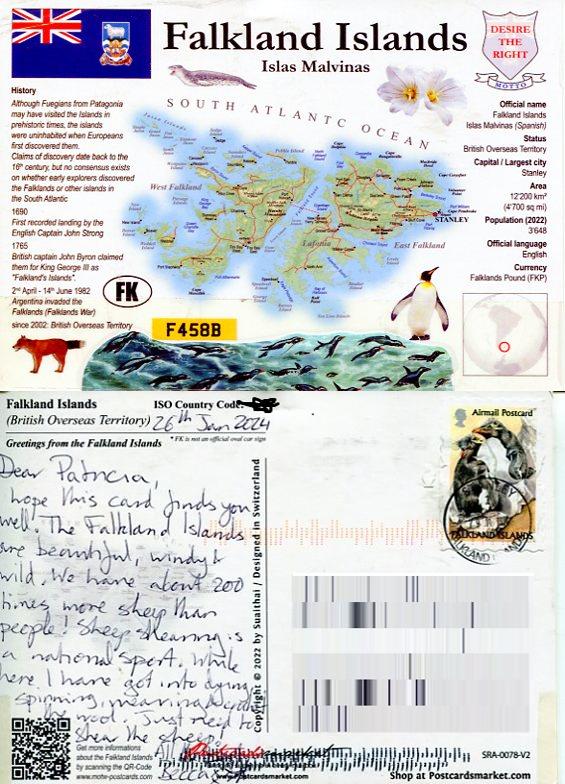 Falkland Islands
Islas Malvinas
DESIRE
THE
RIGHT
MOTTO
SOUTH ATLANTC OCEAN
History
Although Fuegians from Patagonia
may have visited the Islands in
prehistoric times, the islands
were uninhabited when Europeans
first discovered them.
Claims of discovery date back to the
16th century, but no consensus exists
on whether early explorers discovered
the Falklands or other islands in
the South Atlantic
1690
First recorded landing by the
English Captain John Strong
1765
British captain John Byron claimed
them for King George III as
"Falkland's Islands".
2nd April - 14th June 1982
Argentina invaded the
Falklands (Falklands War)
since 2002: British Overseas Territory
West Falkland
Lafonia
East Falkland
STANLEY
Official name
Falkland Islands
Islas Malvinas (Spanish)
Status
British Overseas Territory
Capital / Largest city
Stanley
Area
12'200 km²
(4'700 sq mi)
Population (2022)
3'648
Official language
English
Currency
Falklands Pound (FKP)
FK
F458B
Falkland Islands
ISO Country Code:
(British Overseas Territory) 26th Jan 2024
* FK is not an official oval car sign
Greetings from the Falkland Islands
Airmail Postcard
FALKLAND ISLANDS
Dear Patricia,
hope this card finds you
well. The Falkland Islands
are beautiful, windy &
wild. We have about 200
times more sheep than
people! Sheep shearing is
a national sport. While
here I have got into dying,
spinning,
the wool. Just need to
shear the sheep!
Copyright © 2022 by Suaithai / Designed in Switzerland
Get more informations
about the Falkland Islands
by scanning the QR-Code
www.mohe-postcards.com
www.postcardsmarket.com
SRA-0078-V2
Shop at Postcardsmarket.com